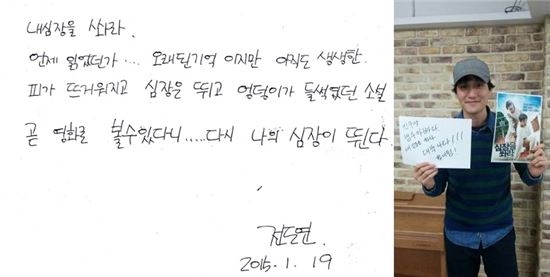 내심장을 쏴라.
언제 읽었던가... 오래된기억 이지만 아직도 생생한.
피가 뜨거워지고 심장은 뛰고 엉덩이가 들썩였던 소설
곧 영화로 볼수있다니.....다시 나의 심장이 뛴다.
전도연.
2015. 1. 19
심장을
쏴라